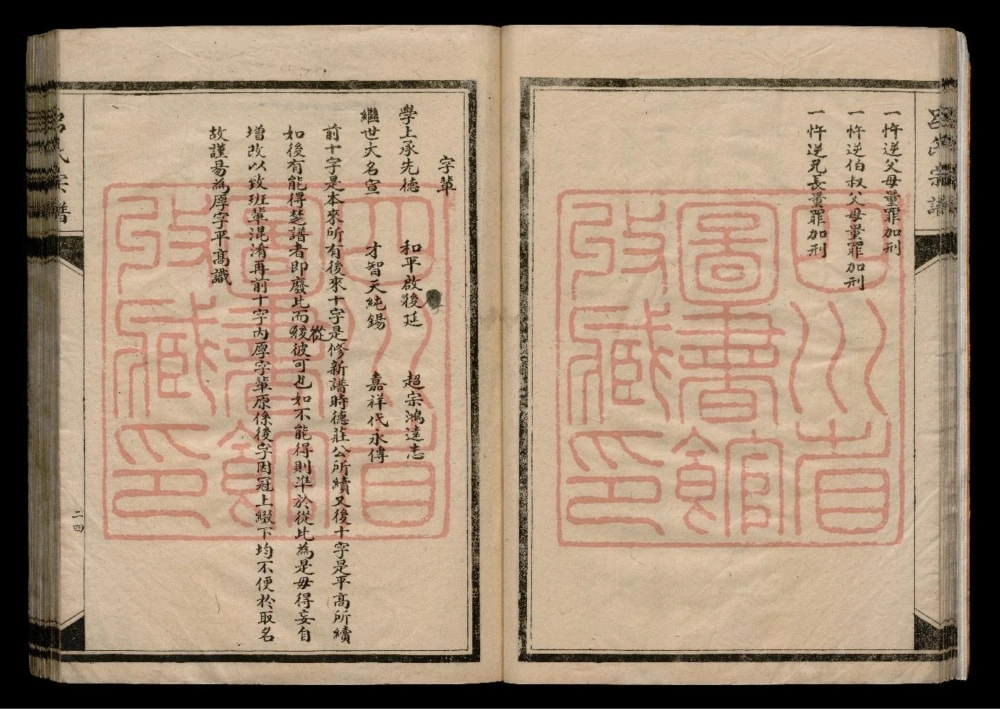 一忤逆父母量罪加刑
一忤逆伯叔父母量罪加刑
一忤逆兄長量罪加刑
呂氏宗譜
四川省
圖書館
收藏印
字輩
學上承先德 和平啟後廷 超宗鴻達志
繼世大名宣 才智天純錫 嘉祥代永傳
前十字是本來所有後來十字是修新譜時德莊公所續又後十字是平高所續
如後有能得楚譜者即廢此而從彼可也如不能得則準於從此為是毋得妄自
增改以致班輩混淆再前十字內厚字輩原係後字因冠上綴下均不便於取名
故謹易為厚字平高識
呂氏宗譜
二四
四川省
圖書館
收藏印